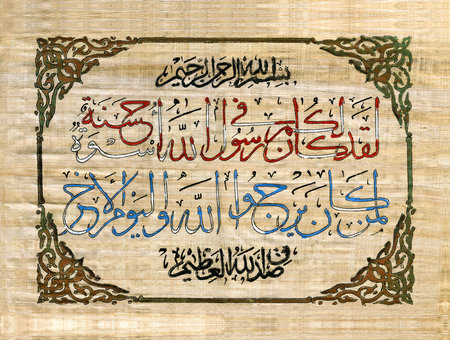 بسم الله الرحمن الرحيم
لقد كان لكم في رسول الله أسوة حسنة
لمن كان يرجوا الله واليوم الآخر
صدق الله العظيم